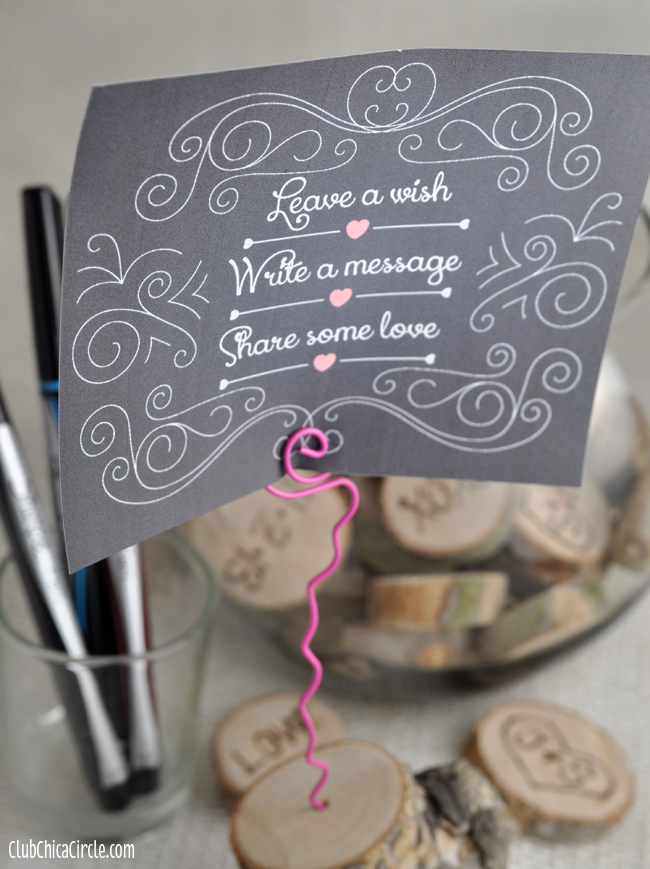 Leave a wish
Write a message
Share some love
LOVE
ClubChicaCircle.com